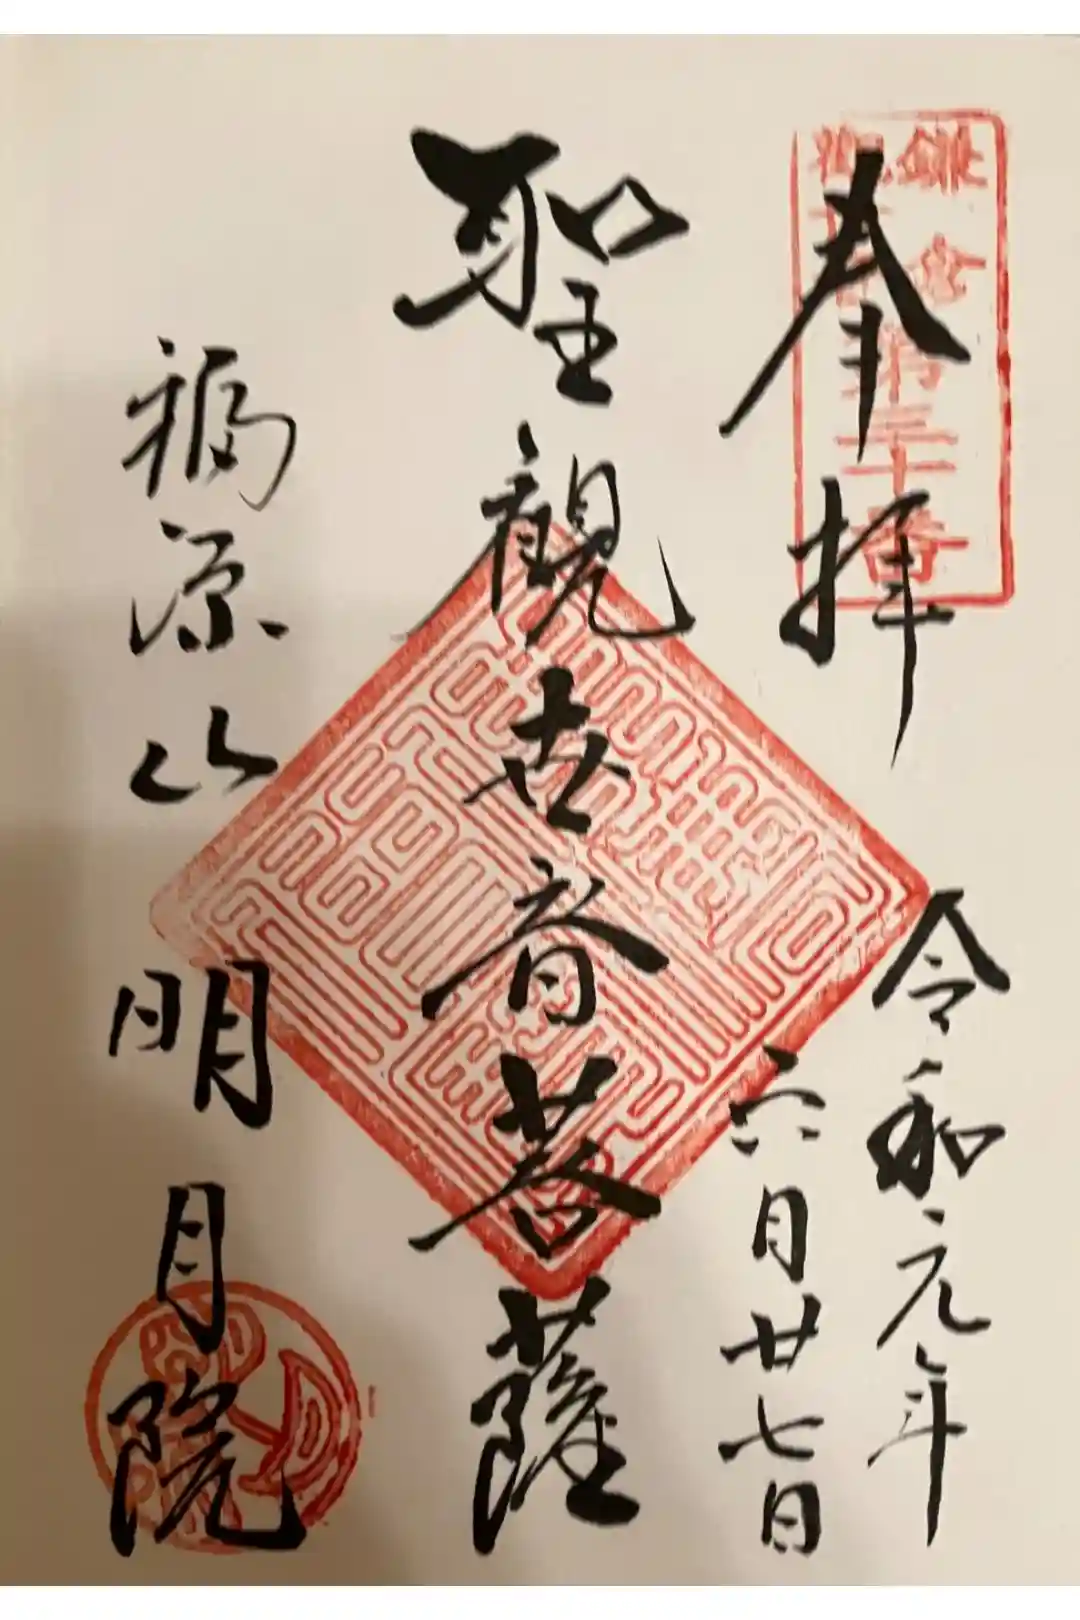 奉拝
鎌倉
観音
第三十番
令和元年
六月廿七日
聖観世音菩薩
福源山明月院